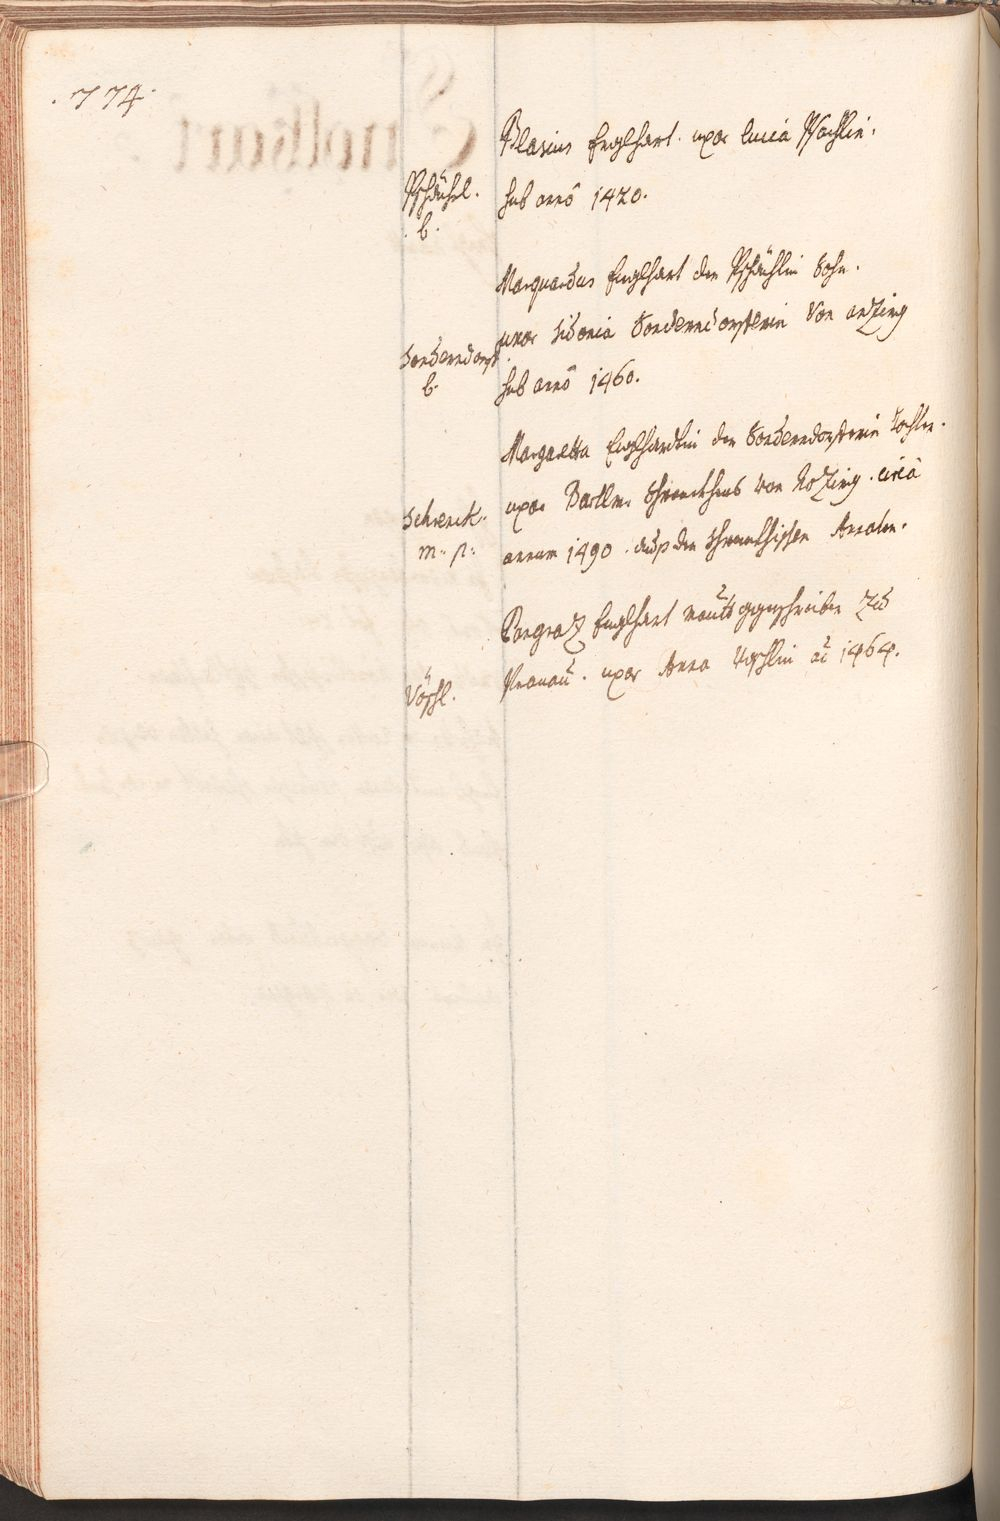 . 774.
Blasius Englhart. uxor Lucia Pschlin.
Pschächl.
b.
sub anno 1420.
Marquardus Englhart der Pschächlin Sohn.
uxor Sidonia Sonderndorfferin von anzing
Sonderndorf
b.
sub anno 1460.
Margaretta Englhardtin der Sonderndorfferin Tochter.
uxor Bartlme Schrenckhens von Nozing. circa
Schrenck.
m: p:
annum 1490. auß den Schrenckhischen Annalen.
Pangraz Englhart mautgegenschreiber zu
Vöschl.
Pranau. uxor Anna Vöschlin aõ 1464.